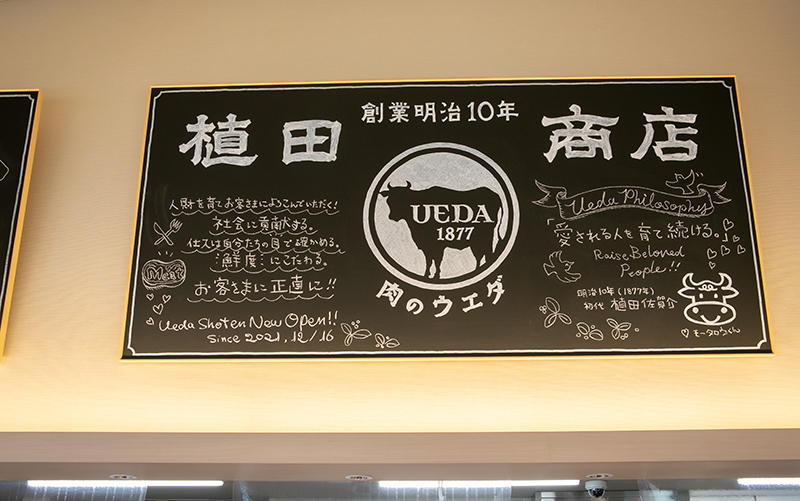 創業明治10年
植田 商店
人財を育てお客さまによろこんでいただく!
社会に貢献する。
仕入は自分たちの目で確かめる。
鮮度にこだわる。
お客さまに正直に!!
Meat
Ueda Shoten New Open!!
Since 2021, 12/16
UEDA
1877
肉のウエダ
Ueda Philosophy
「愛される人を育て続ける。」
Raise Beloved
People!!
明治10年(1877年)
初代 植田佐賀介
モータロウくん